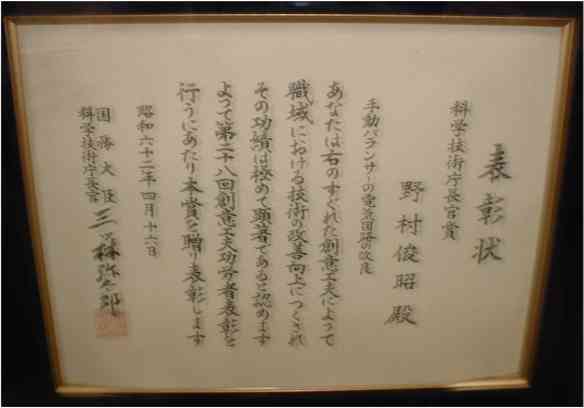 表彰状
科学技術庁長官賞
野村俊昭殿
手動バランサーの電気回路の改良
あなたは右のすぐれた創意工夫によつて
職域における技術の改善向上につくされ
その功績は極めて顕著であると認めます
よつて第二十八回創意工夫功労者表彰を
行うにあたり本賞を贈り表彰します
昭和六十二年四月十六日
国務大臣
科学技術庁長官
三ッ林弥太郎